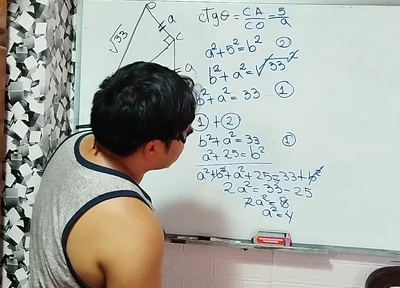 √33
a
C
a
ctgθ = CA/CO = 5/a
a² + 5² = b² ②
b² + a² = √33²
b² + a² = 33 ①
① + ②
b² + a² = 33 ①
a² + 25 = b²
a² + b² + a² + 25 = 33 + b²
2a² = 33 - 25
2a² = 8
a² = 4